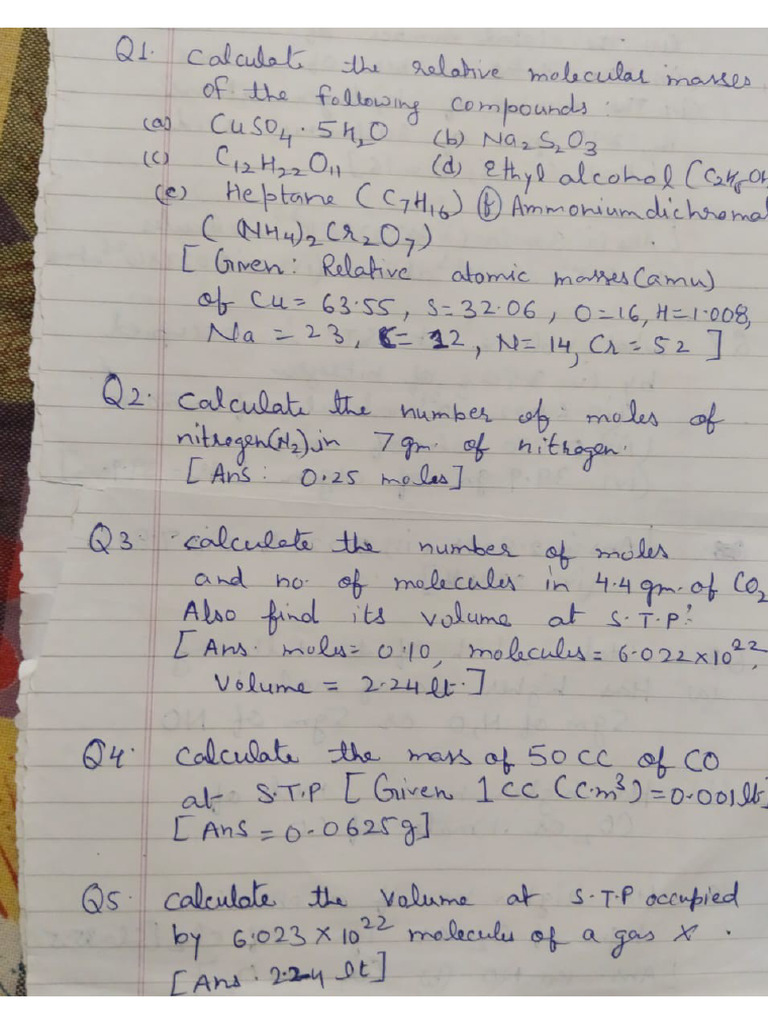 Q1. Calculate the relative molecular masses
of the following compounds:
(a) CuSO4·5H2O (b) Na2S2O3
(c) C12H22O11 (d) Ethyl alcohol (C2H5OH
(e) Heptane (C7H16) (f) Ammonium dichromat
( (NH4)2Cr2O7)
[ Given: Relative atomic masses (amu)
of Cu = 63.55, S = 32.06, O = 16, H = 1.008,
Na = 23, C = 12, N = 14, Cr = 52 ]
Q2. Calculate the number of moles of
nitrogen(N2) in 7 gm. of nitrogen.
[Ans: 0.25 moles]
Q3 calculate the number of moles
and no. of molecules in 4.4 gm. of CO2
Also find its volume at S.T.P.
[Ans. moles = 0.10, molecules = 6.022×10^22,
Volume = 2.24 lt.]
Q4. Calculate the mass of 50 CC of CO
at S.T.P [Given 1 CC (cm3) = 0.001 lt]
[Ans = 0.0625g]
Q5. Calculate the volume at S.T.P occupied
by 6.023 × 10^22 molecules of a gas X.
[Ans: 2.24 lt]